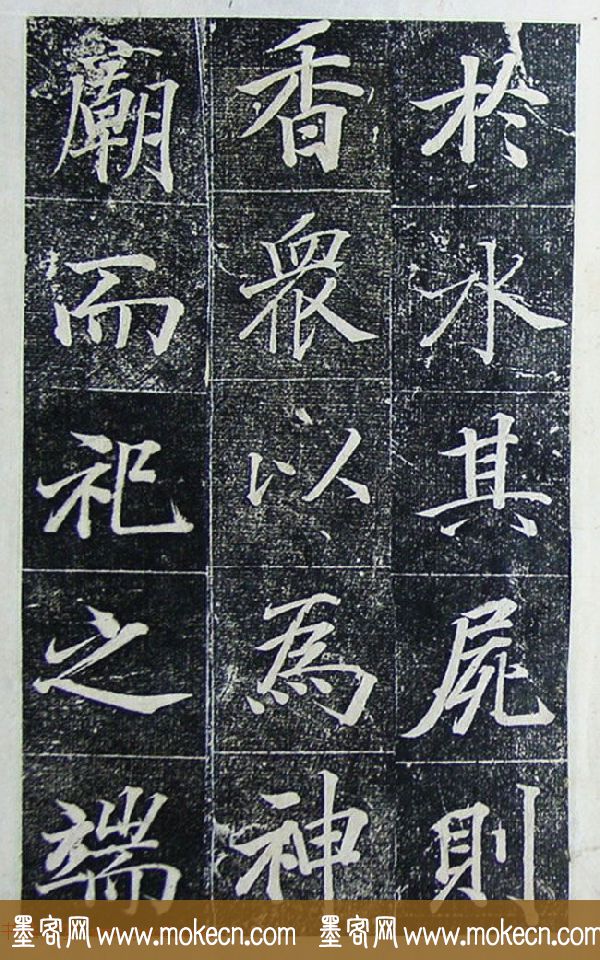 於水其屍則
香眾以為神
廟而祀之端
墨客网 www.mokecn.com 墨客网 www.mokecn.com